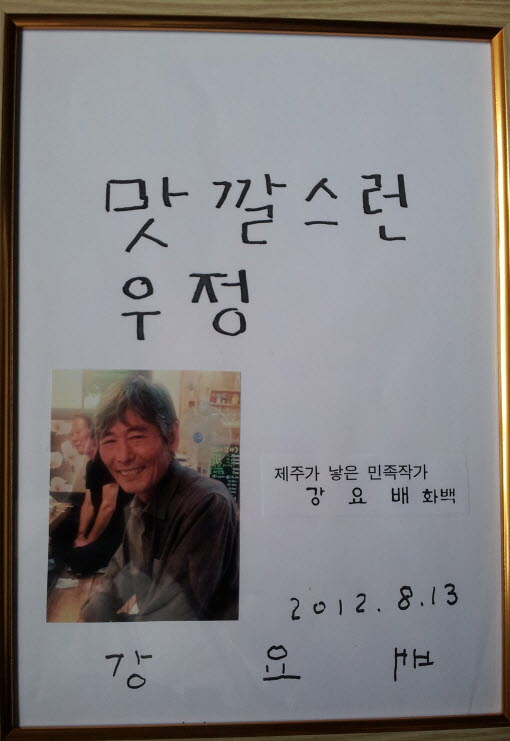 맛깔스런
우정
제주가 낳은 민족작가
강 요 배 화백
2012. 8. 13
강 요 배